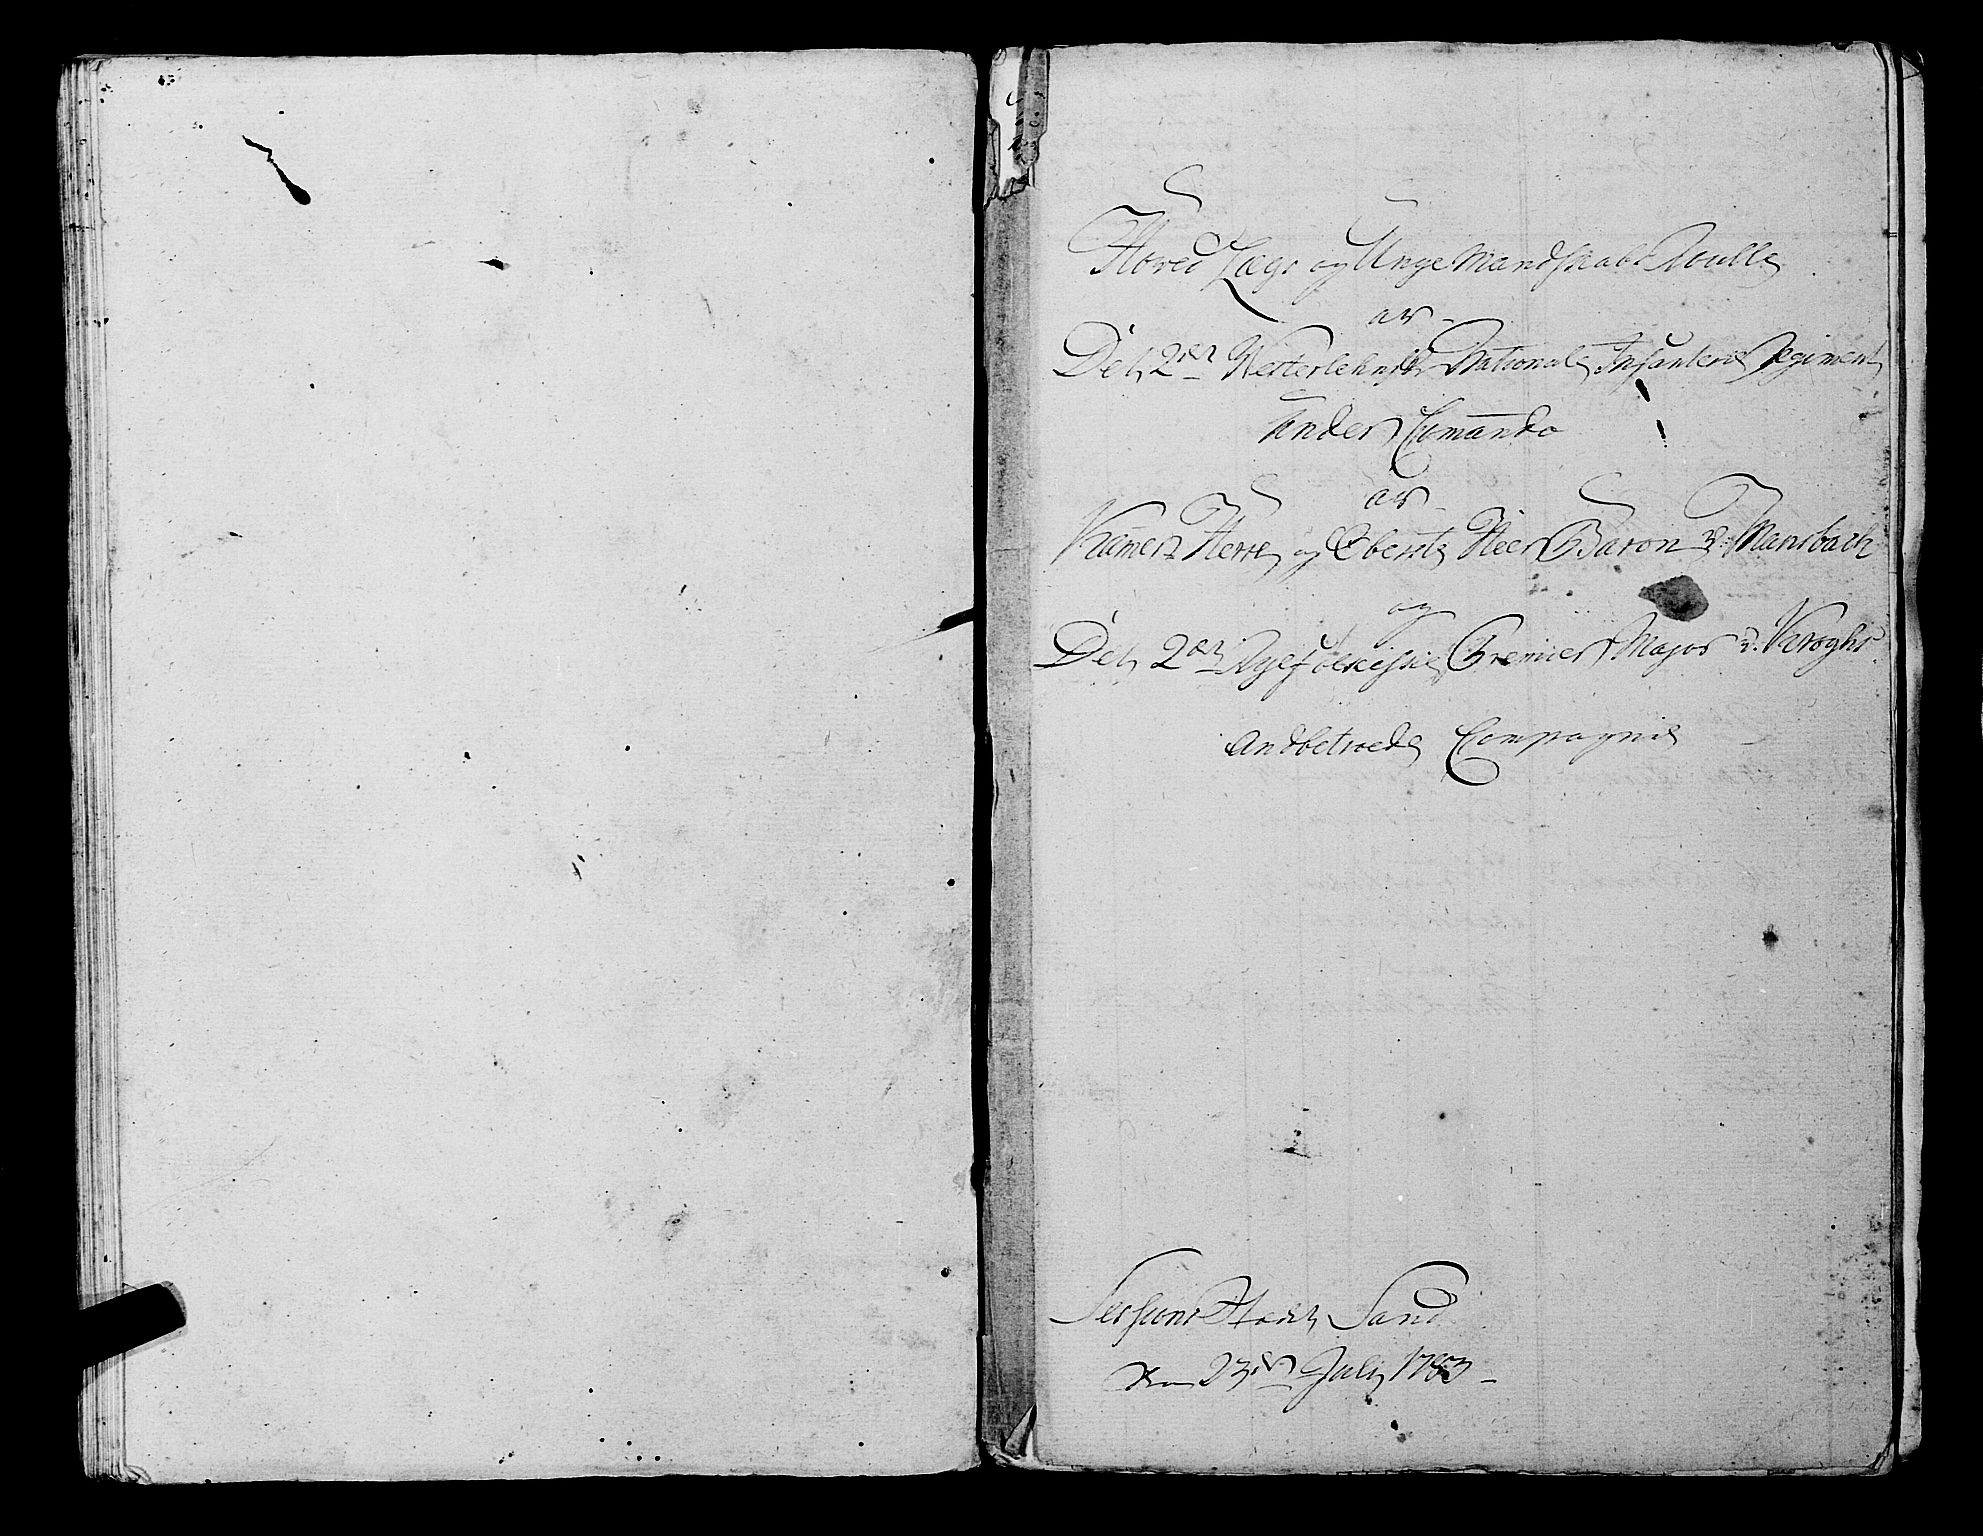 Hoved Lægs og Unge Mandskabs Roulle
av
Det 2den Westerlehnske Nationale Infanterie Regiment
Under Comando
av
Kamer Herre og Oberste Herr Baron v. Mansbach
og
Det 2det Ryefylkische Premier Major v. Kroghs
Andbetroede Compagnie
Sessions Stædet Sand
den 23de July 1783